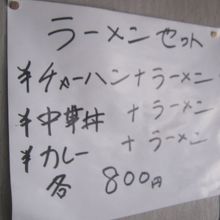 ラーメンセット
*チャーハン+ラーメン
*中華丼 +ラーメン
*カレー +ラーメン
各 800円